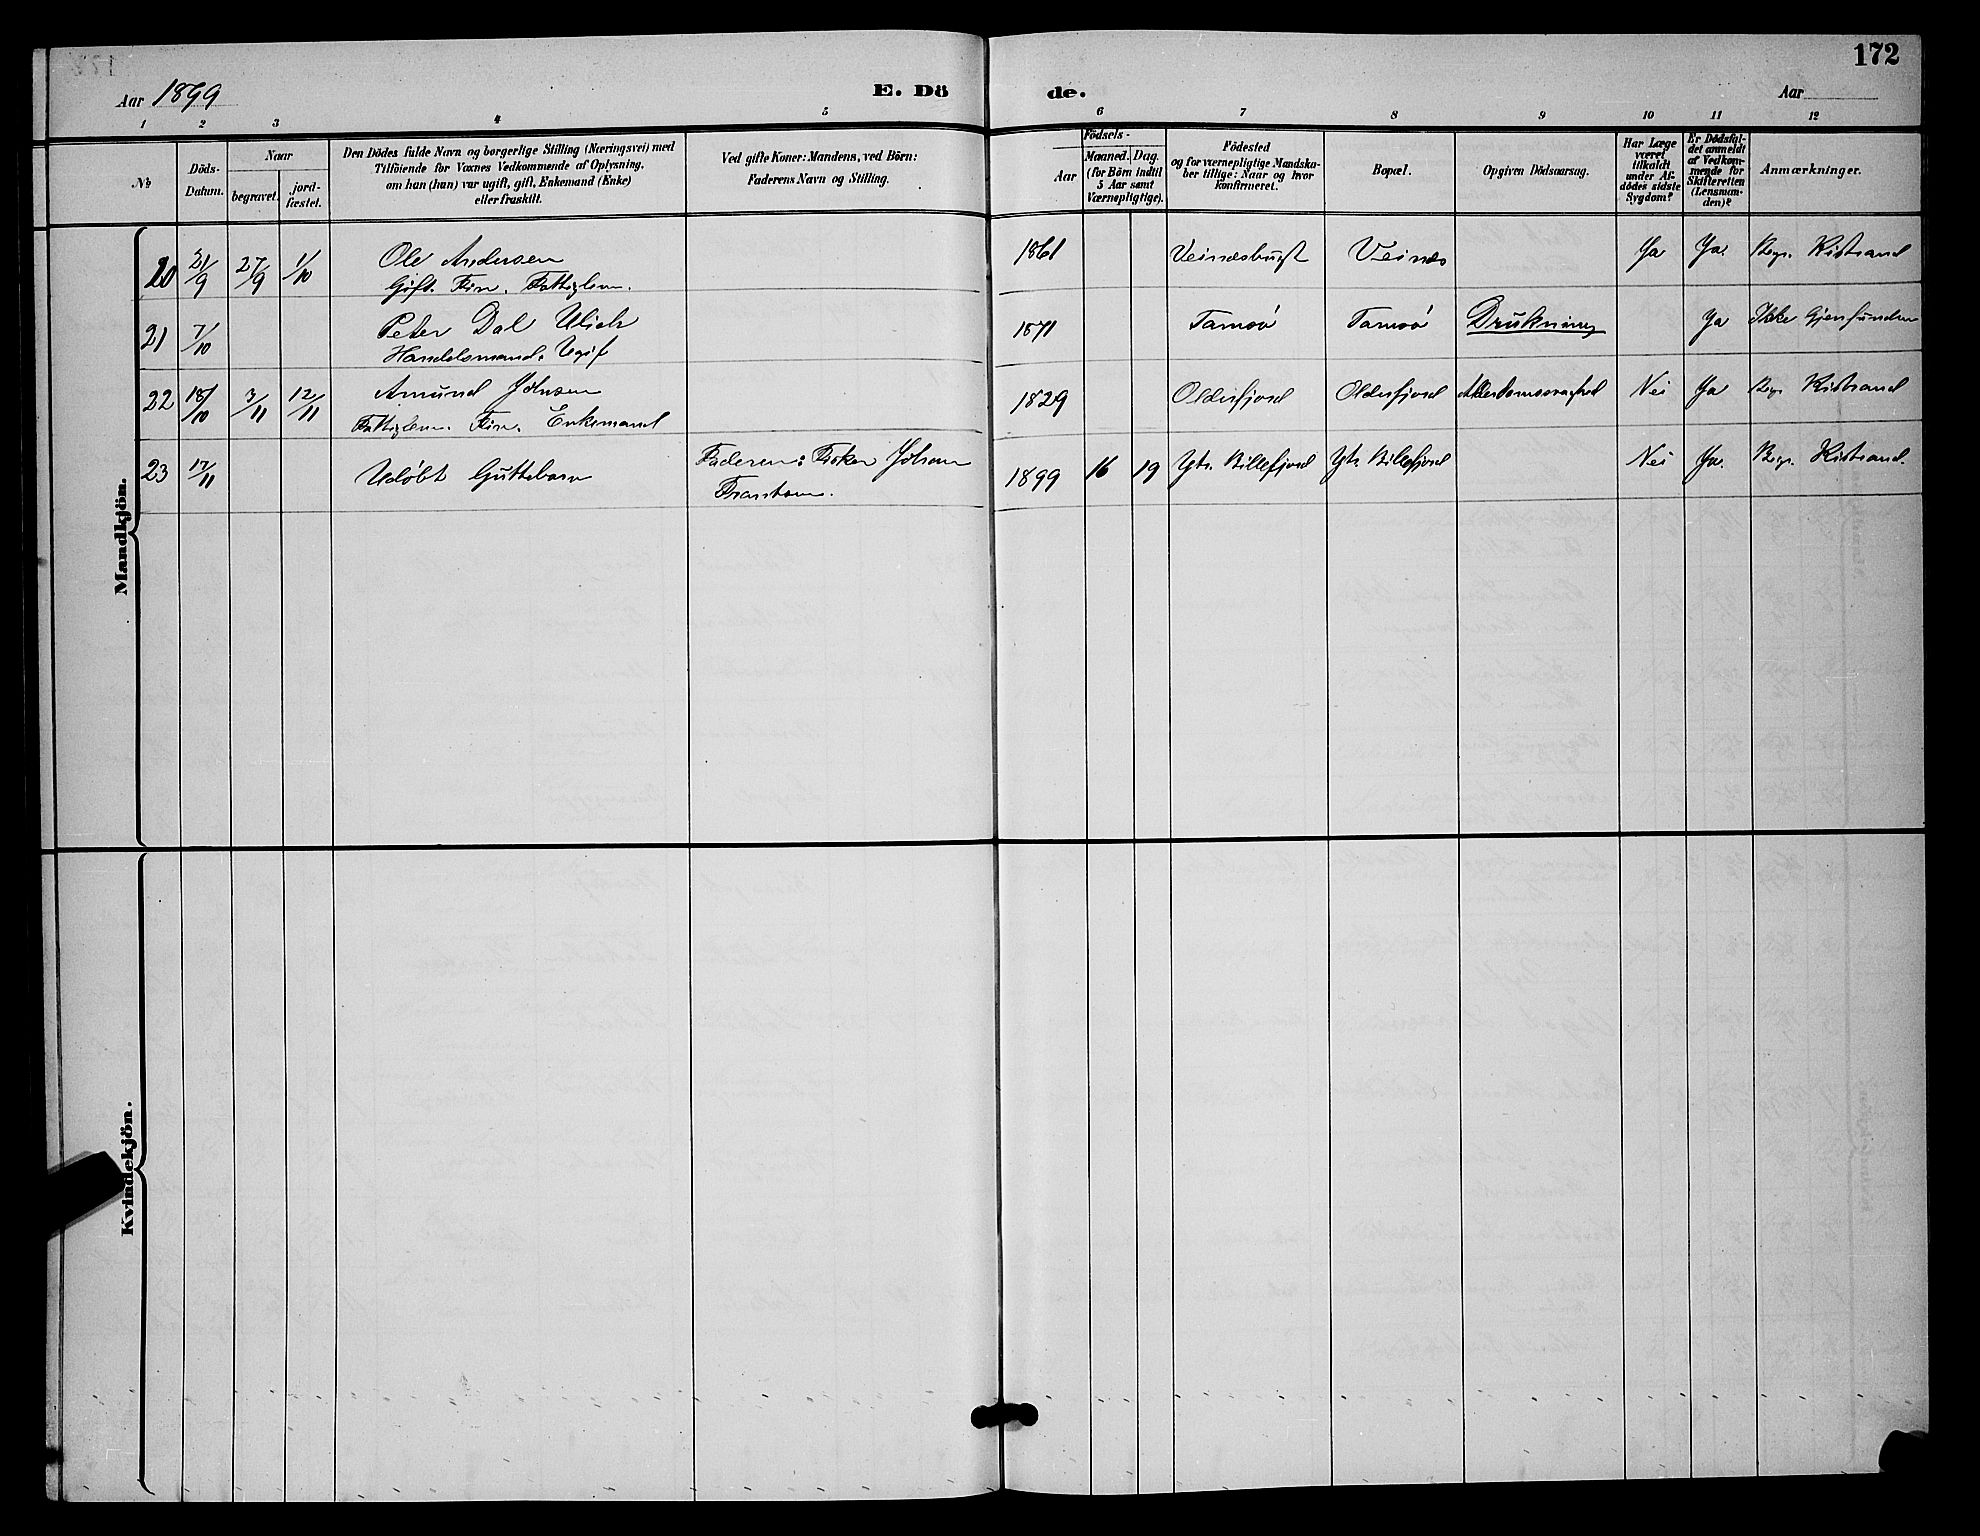 172
Aar 1899
E. Dö de.
Aar
1 2 3 4 5 6 7 8 9 10 11 12
№
Döds-
Datum.
Naar
begravet.
jord-
fæstet.
Den Dödes fulde Navn og borgerlige Stilling (Næringsvei) med
Tilföiende for Voxnes Vedkommende af Oplysning,
om han (hun) var ugift, gift, Enkemand (Enke)
eller fraskilt.
Ved gifte Koner: Mandens, ved Börn:
Faderens Navn og Stilling.
Födsels-
Aar
Maaned. Dag.
(for Börn indtil
5 Aar samt
Værnepligtige).
Födested
og for værnepligtige Mandska-
ber tillige: Naar og hvor
konfirmeret.
Bopæl.
Opgiven Dödsaarsag.
Har Læge
været
tilkaldt
under Af-
dödes sidste
Sygdom?
Er Dödsfal-
det anmeldt
af Vedkom-
mende for
Skifteretten
(Lensman-
den)?
Anmærkninger.
Mandkjön.
20 21/9 27/9 1/10 Ole Andersen 1861 Veinesbugt Veines Ja Ja. Begr. Kistrand
Gift. Fin. Fattiglem.
21 7/10 Peter Dal Ulich 1871 Tamsö Tamsö Drukning Ja Ikke Gjenfunden
Handelsmand. Ugift
22 18/10 3/11 12/11 Amund Johnsen 1829 Olderfjord Olderfjord Nei Ja Begr. Kistrand
Fattiglem. Fin. Enkemand
23 17/11 Udöbt Guttebarn Faderen: Fisker Johan 1899 16 19 Ytr. Billefjord Ytr. Billefjord Nei Ja. Begr. Kistrand.
Kvindekjön.